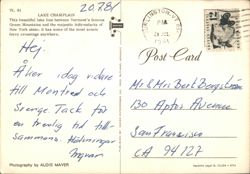 PL 81
LAKE CHAMPLAIN
This beautiful lake lies between Vermont's famous
Green Mountains and the majestic Adirondacks of
New York state. It has some of the most scenic
ferry crossings anywhere.
20.7.81
Hej.
Åker idag vidare
till Montreal och
Sverige. Tack för
en trevlig tid till-
sammans. Hälsningar
Ingvar
Photography by AUDIS MAYER
Post Card
Mr & Mrs Bert Bergström
120 Aptos Avenue
San Francisco
CA 94127